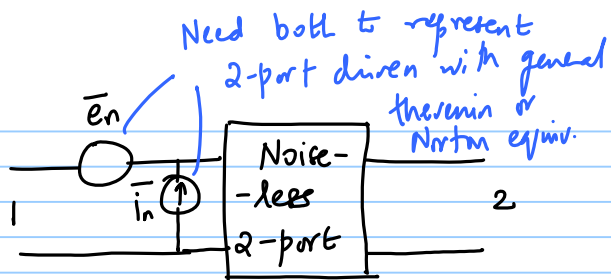 Need both to represent
2-port driven with general
thevenin or
Norton equiv.
e̅n
Noise-
1 i̅n -less 2
2-port